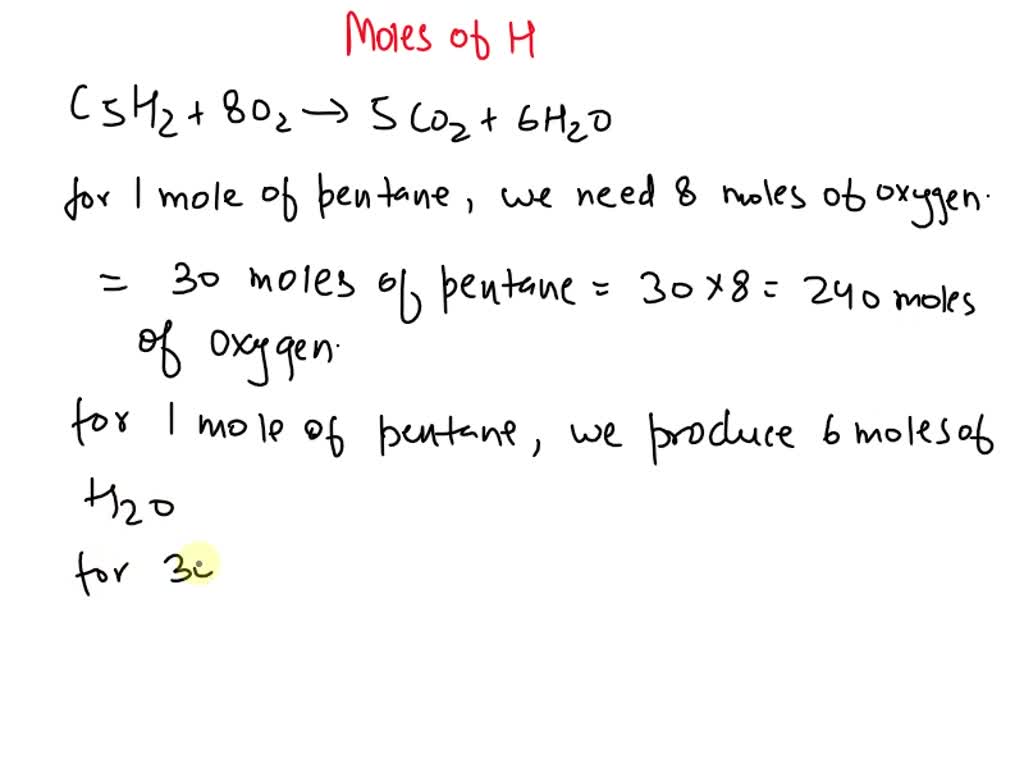 Moles of H
C5H2 + 8O2 → 5CO2 + 6H2O
for 1 mole of pentane, we need 8 moles of oxygen.
= 30 moles of pentane = 30 × 8 = 240 moles
of oxygen.
for 1 mole of pentane, we produce 6 moles of
H2O
for 30